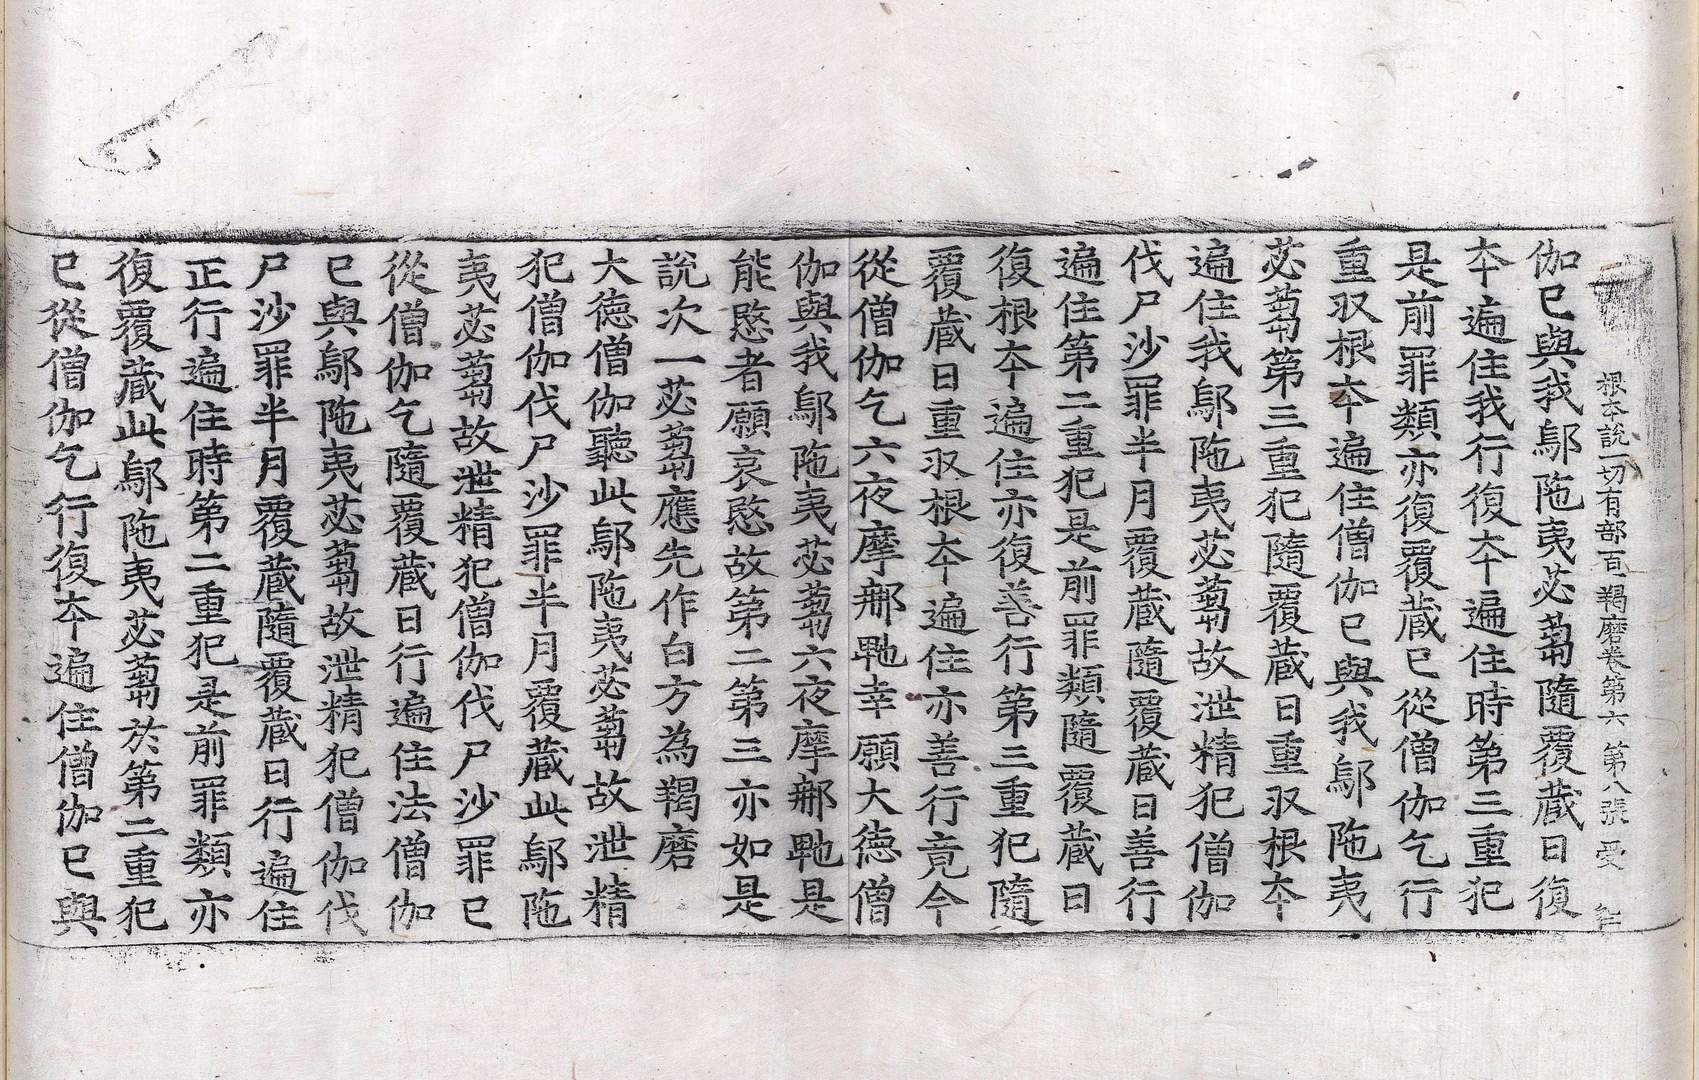 根本說一切有部百一羯磨卷第六 第八張 受
伽已與我鄔陁夷苾蒭隨覆藏日復
夲遍住我行復夲遍住時第三重犯
是前罪類亦復覆藏已從僧伽乞行
重収根夲遍住僧伽已與我鄔陁夷
苾蒭第三重犯隨覆藏日重収根夲
遍住我鄔陁夷苾蒭故泄精犯僧伽
伐尸沙罪半月覆藏隨覆藏日善行
遍住第二重犯是前罪類隨覆藏日
復根夲遍住亦復善行第三重犯隨
覆藏日重収根夲遍住亦善行竟今
從僧伽乞六夜摩那𤚥幸願大德僧
伽與我鄔陁夷苾蒭六夜摩那𤚥是
能愍者願哀愍故第二第三亦如是
說次一苾蒭應先作白方為羯磨
大德僧伽聽此鄔陁夷苾蒭故泄精
犯僧伽伐尸沙罪半月覆藏此鄔陁
夷苾蒭故泄精犯僧伽伐尸沙罪已
從僧伽乞隨覆藏日行遍住法僧伽
已與鄔陁夷苾蒭故泄精犯僧伽伐
尸沙罪半月覆藏隨覆藏日行遍住
正行遍住時第二重犯是前罪類亦
復覆藏此鄔陁夷苾蒭於第二重犯
已從僧伽乞行復夲遍住僧伽已與